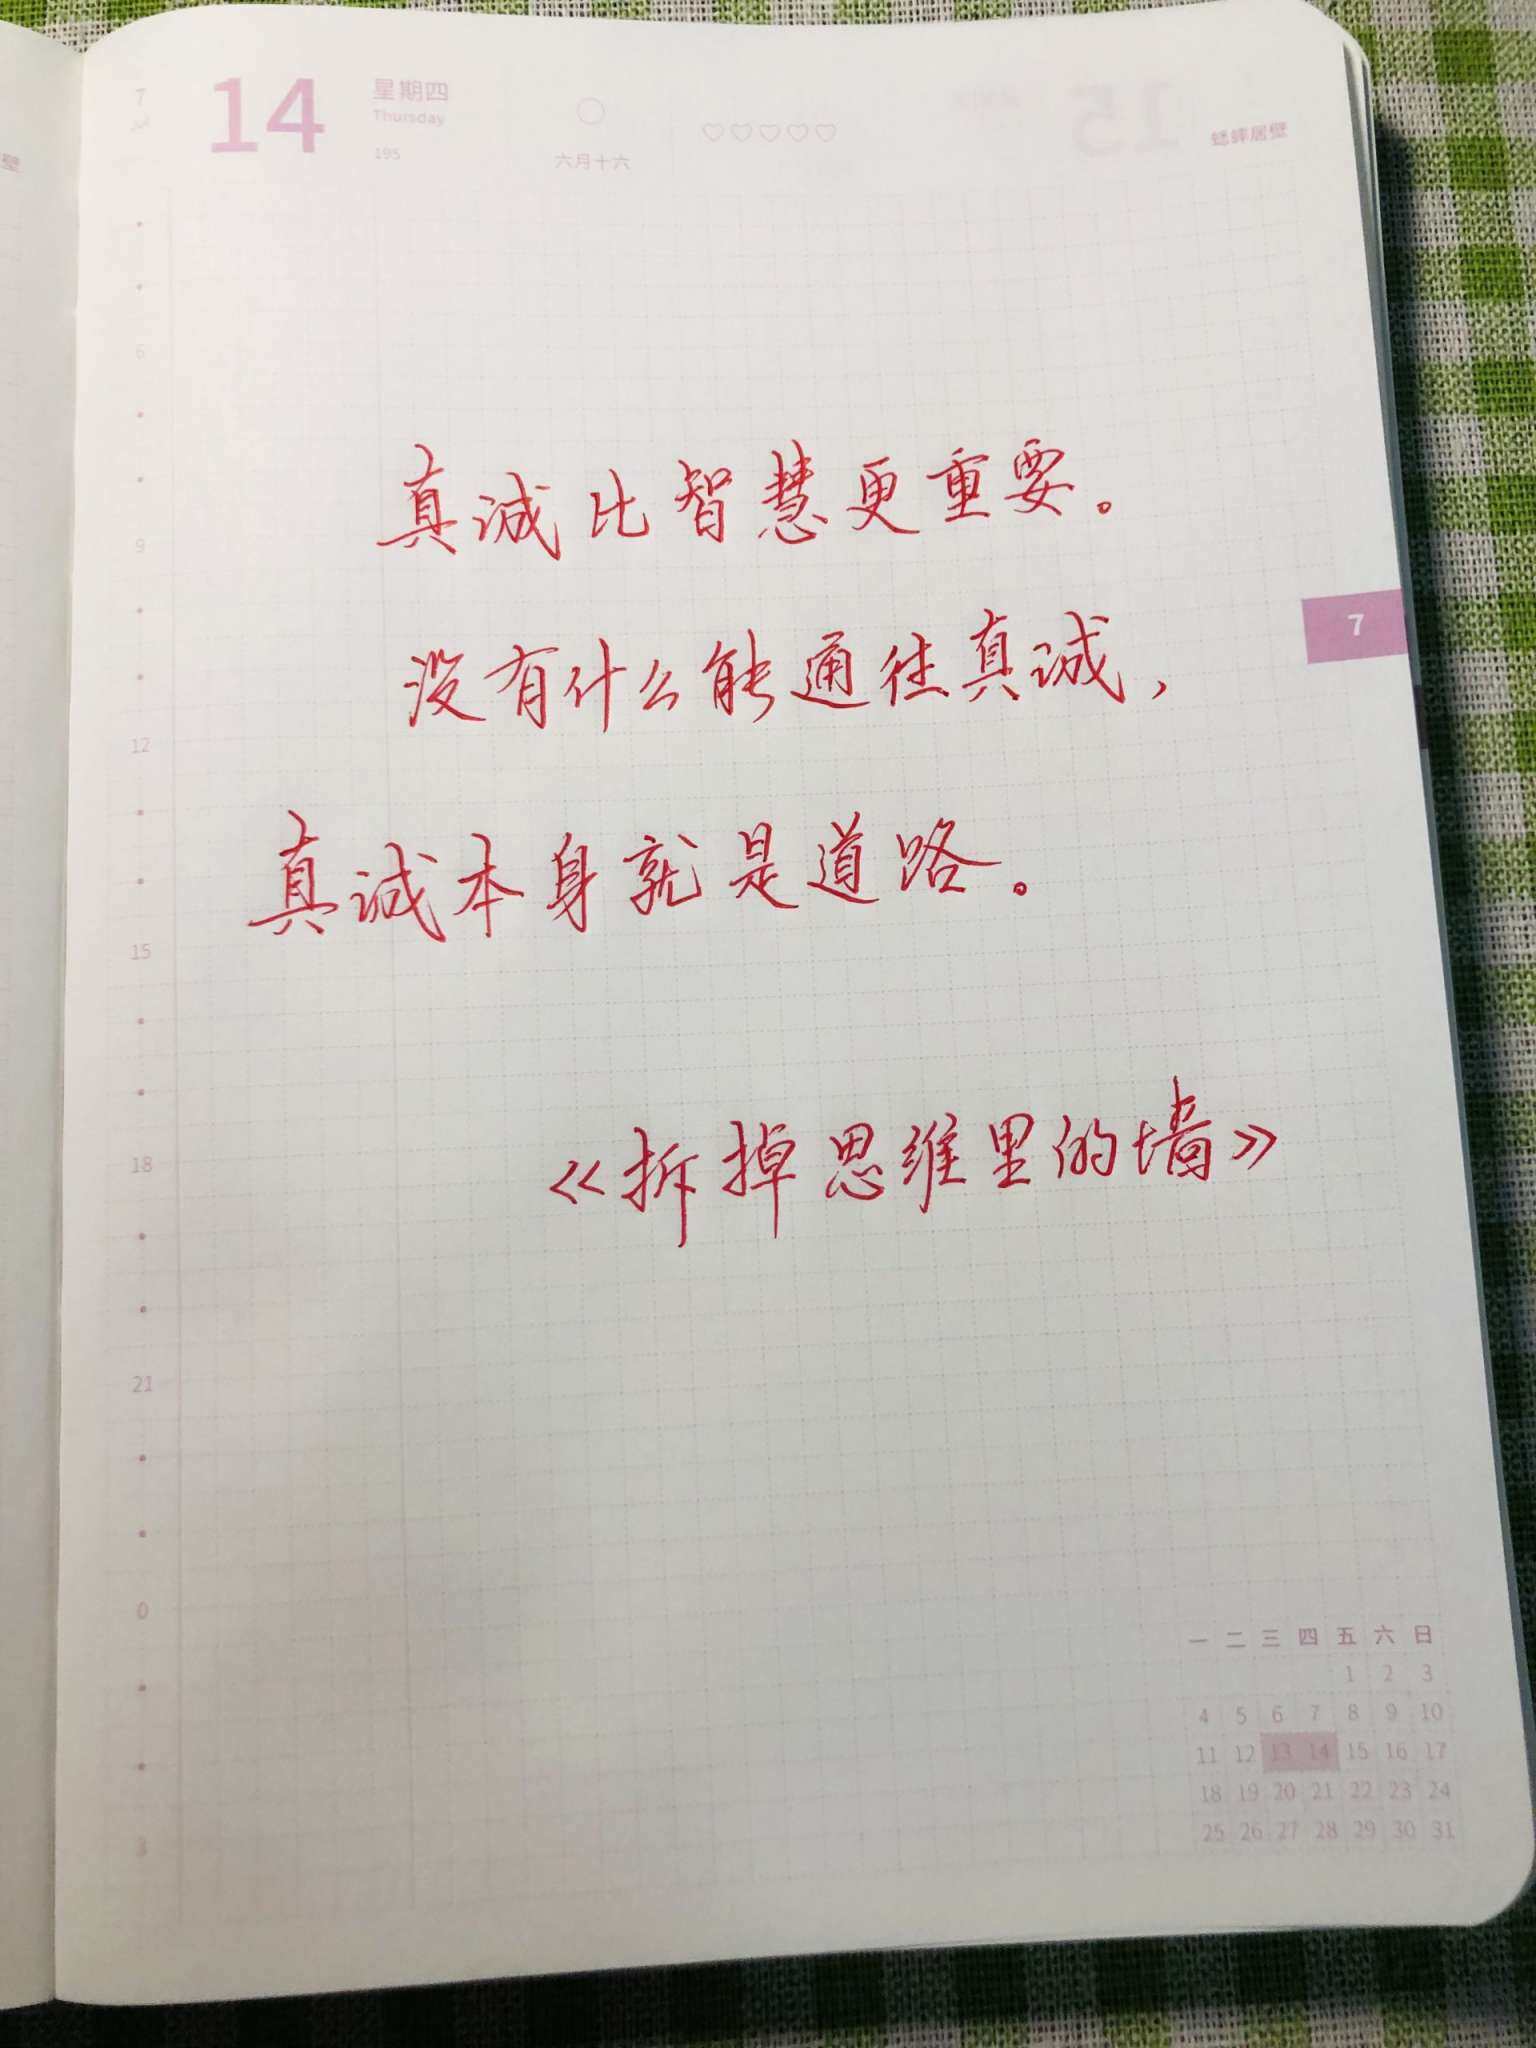 7
14
星期四
Thursday
195
六月十六
蟋蟀居壁
真诚比智慧更重要。
没有什么能通往真诚，
真诚本身就是道路。
《拆掉思维里的墙》
7
6
9
12
15
18
21
0
3
一 二 三 四 五 六 日
1 2 3
4 5 6 7 8 9 10
11 12 13 14 15 16 17
18 19 20 21 22 23 24
25 26 27 28 29 30 31